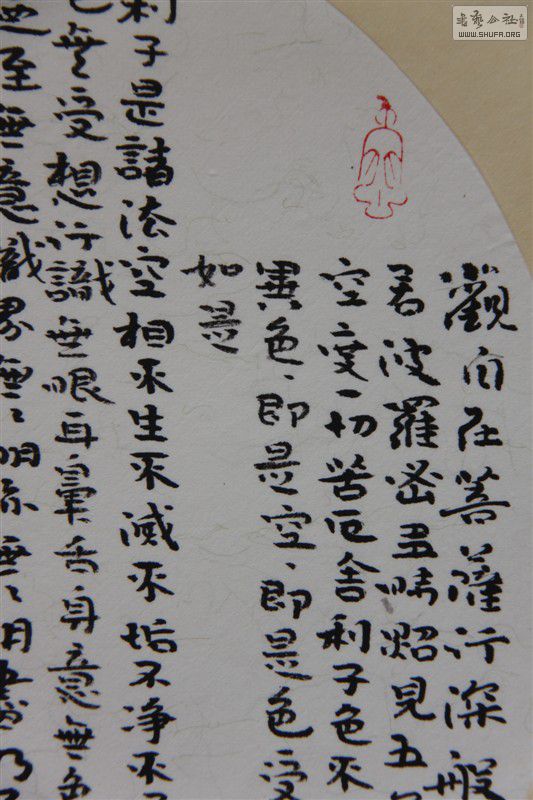 書藝公社
WWW.SHUFA.ORG
觀自在菩薩行深般
若波羅密多時照見五
空度一切苦厄舍利子色不
異色、即是空、即是色受
如是
利子是諸法空相不生不滅不垢不净不
無受想行識無眼耳鼻舌身意無色
至無意識界無〻明亦無〻明盡乃